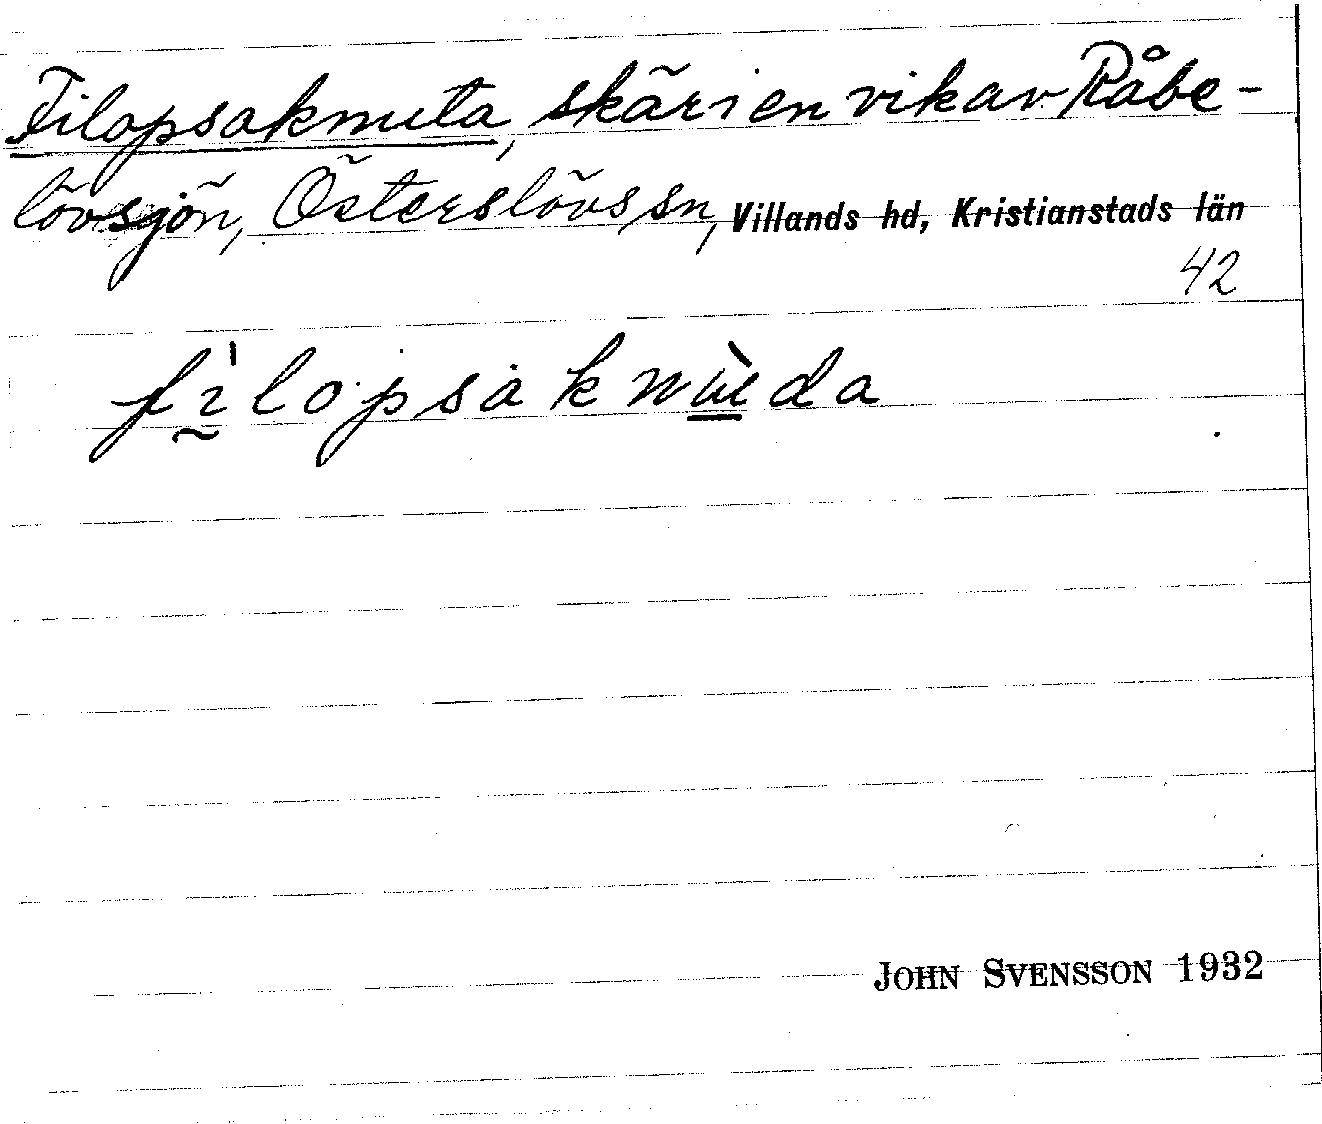 Filopsaknuta, skär i en vik av Råbe-
lövsjön, Österslövs sn, Villands hd, Kristianstads län
42
filopsaknuda
JOHN SVENSSON 1932